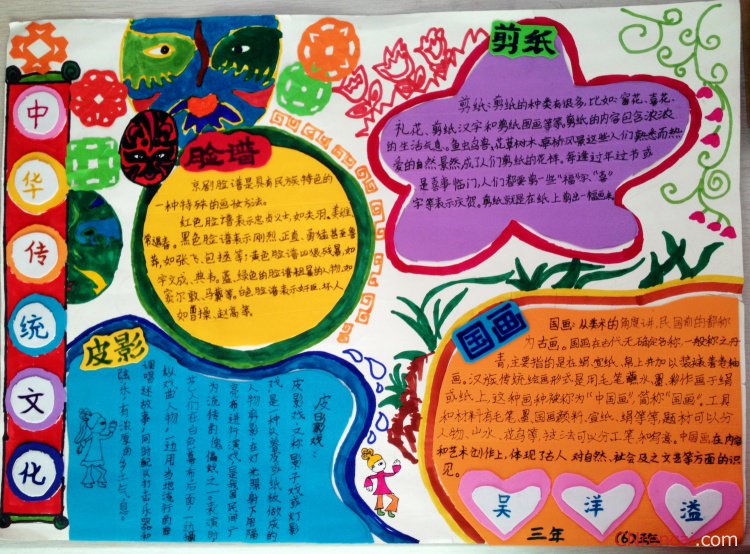 中
华
传
统
文
化
脸谱
京剧脸谱是具有民族特色的
一种特殊的画妆方法。
红色脸谱表示忠贞义士,如关羽、姜维
黑色脸谱表示刚烈、正直、勇猛甚至鲁
莽,如张飞、包拯等;黄色脸谱凶狠残暴,如
宇文成、典韦。蓝、绿色的脸谱粗暴的人物,如
窦尔敦、马武等。白色脸谱表示奸臣、坏人
如曹操、赵高等。
剪纸
剪纸:剪纸的种类有很多,比如:窗花、喜花、
礼花、剪纸汉字和剪纸国画等等,剪纸的内容包含浓浓
的生活气息,鱼虫鸟兽、花草树木、亭桥风景这些人们熟悉而热
爱的自然景然成了人们剪纸的花样,每逢过年过节或
是喜事临门,人们都要剪一些“福”字、“喜”
字等表示庆贺。剪纸就是在纸上剪出一幅画来
皮影
皮影戏:
皮影戏,又称“影子戏”或“灯影
戏”是一种以兽皮或纸板做成的
人物剪影在灯光照射下用隔
亮布进行演戏,是我国民间广
为流传的傀儡戏之一。表演时
艺人们在白色幕布后面,一边操
纵戏曲人物,一边用当地流行的曲
调唱述故事,同时配以打击乐器和
弦乐,有浓厚的乡土气息。
国画
国画:从美术的角度讲,民国前的都称
为古画。国画在古代无确定名称,一般称之丹
青,主要指的是在绢、宣纸、帛上并加以装裱的卷轴
画。汉族传统绘画形式是用毛笔蘸水、墨、彩作画于绢
或纸上,这种画种被称为“中国画”,简称“国画”。工具
和材料有毛笔、墨、国画颜料、宣纸、绢等等,题材可以分
人物、山水、花鸟等,技法可以分工笔和写意,中国画在内容
和艺术创作上,体现了古人对自然、社会及之文艺等方面的认
识。
吴 洋 溢
三年 (6)班
.com